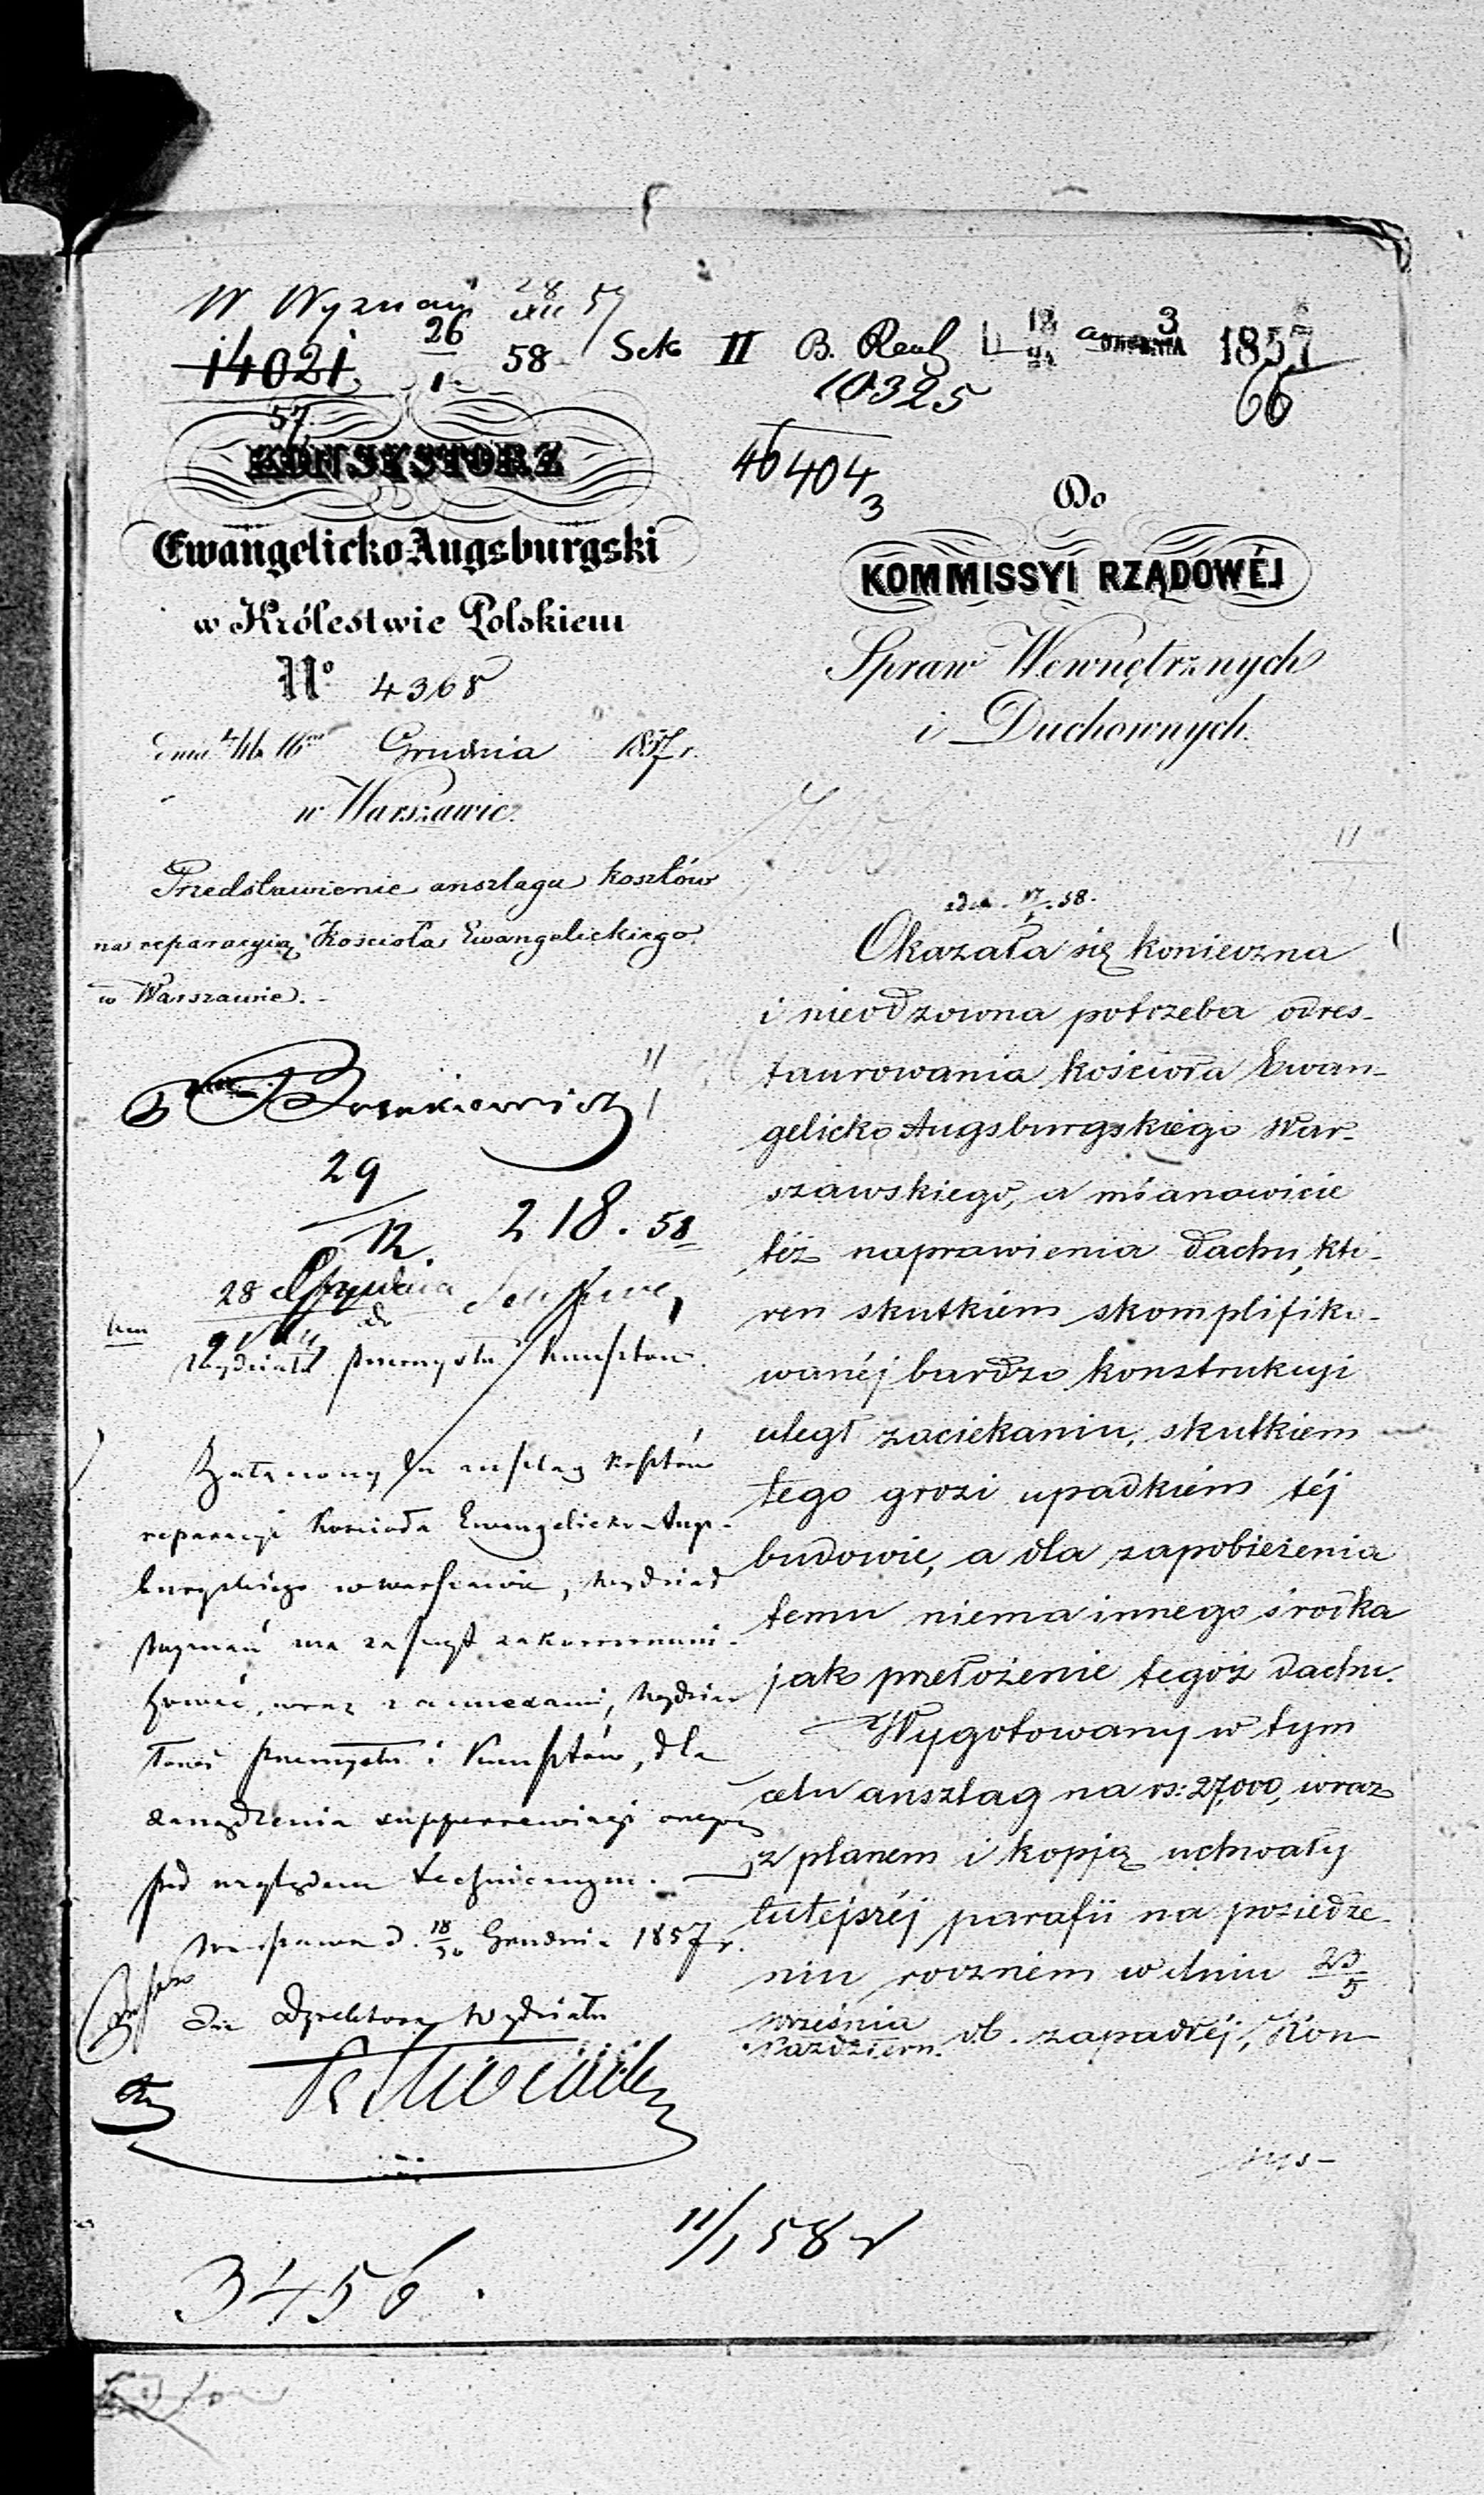 W Wyznań 28 XII 57
14021 26 58 Sek II B. Real 18 3 1857
57 1 10325 66
46404
3
KONSYSTORZ
Ewangelicko-Augsburgski
w Królestwie Polskiem
N° 4368
dnia 4/16 Grudnia 1857 r.
w Warszawie.
Przedstawienie anszlagu kosztów
na reparacyią Kościoła Ewangelickiego
w Warszawie.
29
12 218. 58
28
do
Wydziału Przemysłu i Kunsztów
Załączony tu anszlag kosztów
reparacyi Kościoła Ewangelicko-Augs-
burgskiego w Warszawie, Wydział
Wyznań ma zaszczyt zakommuni-
kować, wraz z annexami, Wydzia-
łowi Przemysłu i Kunsztów, dla
zarządzenia superrewizyi onegoż
pod względem technicznym.
Warszawa d. 18/30 Grudnia 1857 r.
Dyrektora Wydziału
3456.
11/1 58 r
Do
KOMMISSYI RZĄDOWÉJ
Spraw Wewnętrznych
i Duchownych.
17/1. 58.
Okazała się konieczna
i nieodzowna potrzeba odres-
taurowania kościoła Ewan-
gelicko Augsburgskiego War-
szawskiego, a mianowicie
téż naprawienia dachu, któ-
ren skutkiem skomplifiko-
wanéj bardzo konstrukcyi
uległ zaciekaniu, skutkiem
tego grozi upadkiem téj
budowie, a dla zapobieżenia
temu niema innego środka
jak przełożenie tegoż dachu.
Wygotowany w tym
celu anszlag na rs: 27,000, wraz
z planem i kopją uchwały
tutejszéj parafii na posiedze-
niu roczném w dniu 23/5
Września/Październ. r.b. zapadłéj, Kon-